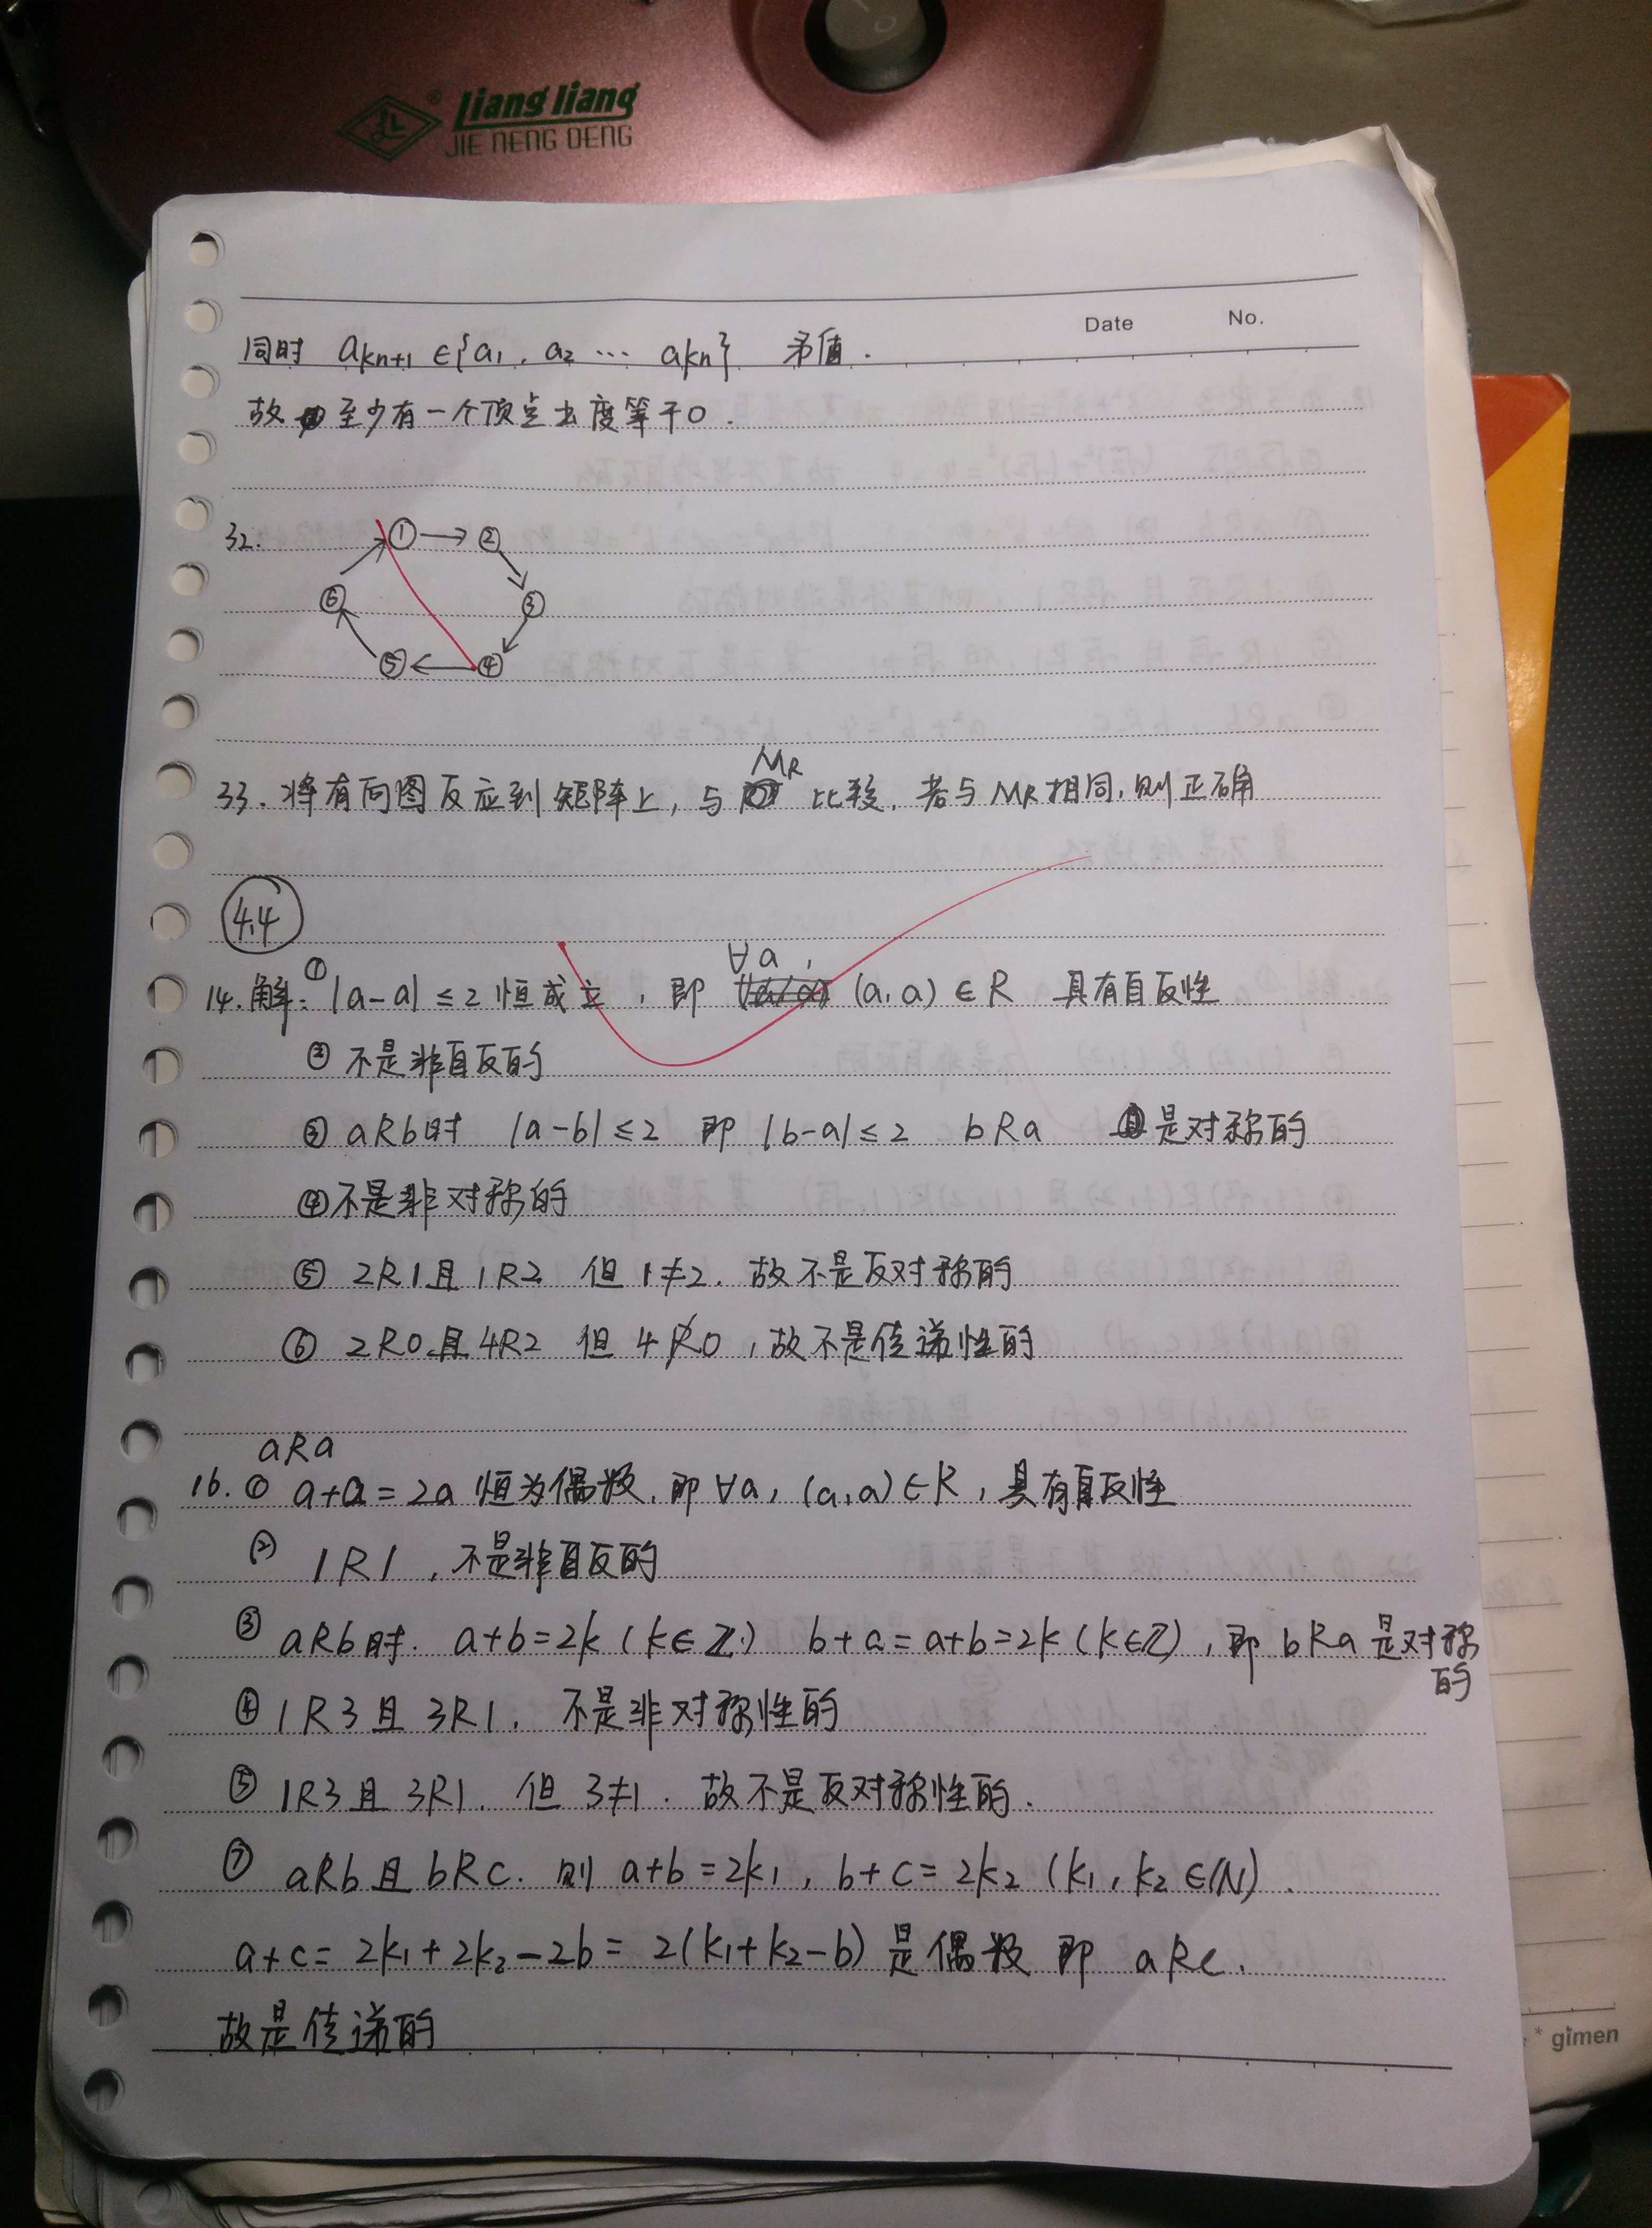 liang liang
JIE NENG DENG
Date No.
同时 akn+1 ∈{a1, a2 … akn} 矛盾.
故 至少有一个顶点出度等于0.
32. ① → ② ③ ④ ⑤ ⑥
33. 将有向图反应到矩阵上, 与 MR 比较, 若与 MR 相同, 则正确
4.4
14. 解: ① |a-a| ≤ 2 恒成立, 即 ∀a, (a,a) ∈ R 具有自反性
② 不是非自反的
③ aRb时 |a-b| ≤ 2 即 |b-a| ≤ 2 bRa 是对称的
④ 不是非对称的
⑤ 2R1且1R2 但 1≠2. 故不是反对称的
⑥ 2R0且4R2 但 4R̸0, 故不是传递性的
aRa
16. ① a+a = 2a 恒为偶数, 即 ∀a, (a,a)∈R, 具有自反性
② 1R1, 不是非自反的
③ aRb时. a+b=2k (k∈Z) b+a=a+b=2k (k∈Z), 即 bRa 是对称的
④ 1R3 且 3R1, 不是非对称性的
⑤ 1R3且 3R1. 但 3≠1. 故不是反对称性的.
⑦ aRb且 bRc. 则 a+b=2k1, b+c=2k2 (k1, k2 ∈N).
a+c= 2k1+2k2-2b= 2(k1+k2-b) 是偶数 即 aRc.
故是传递的
gimen